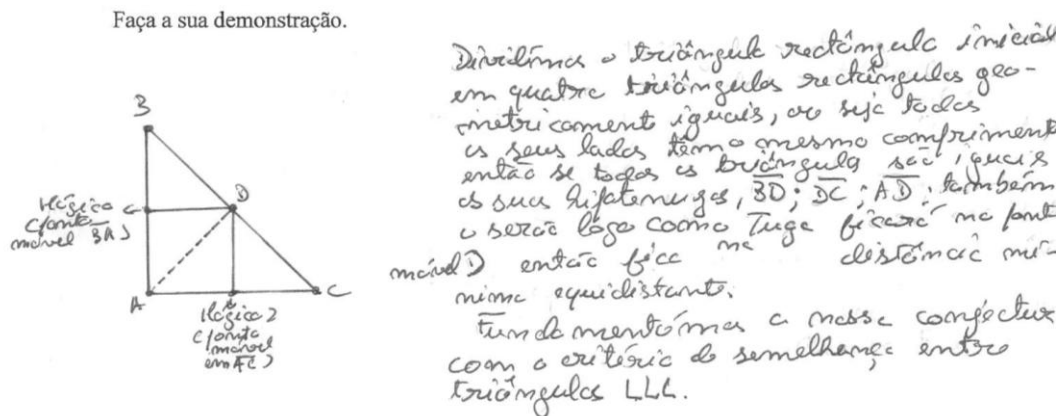 Faça a sua demonstração.
B
D
C
A
Dividimos o triângulo rectângulo inicial
em quatro triângulos rectângulos geo-
metricamente iguais, ou seja todos
os seus lados têm o mesmo comprimento
então se todos os triângulo são iguais
as suas hipotenusas, BD; DC; AD, também
o serão logo como Tuga ficará no ponto
móvel D então fica na distância mí-
nima equidistante.
Fundamentámos a nossa conjectura
com o critério de semelhança entre
triângulos LLL.